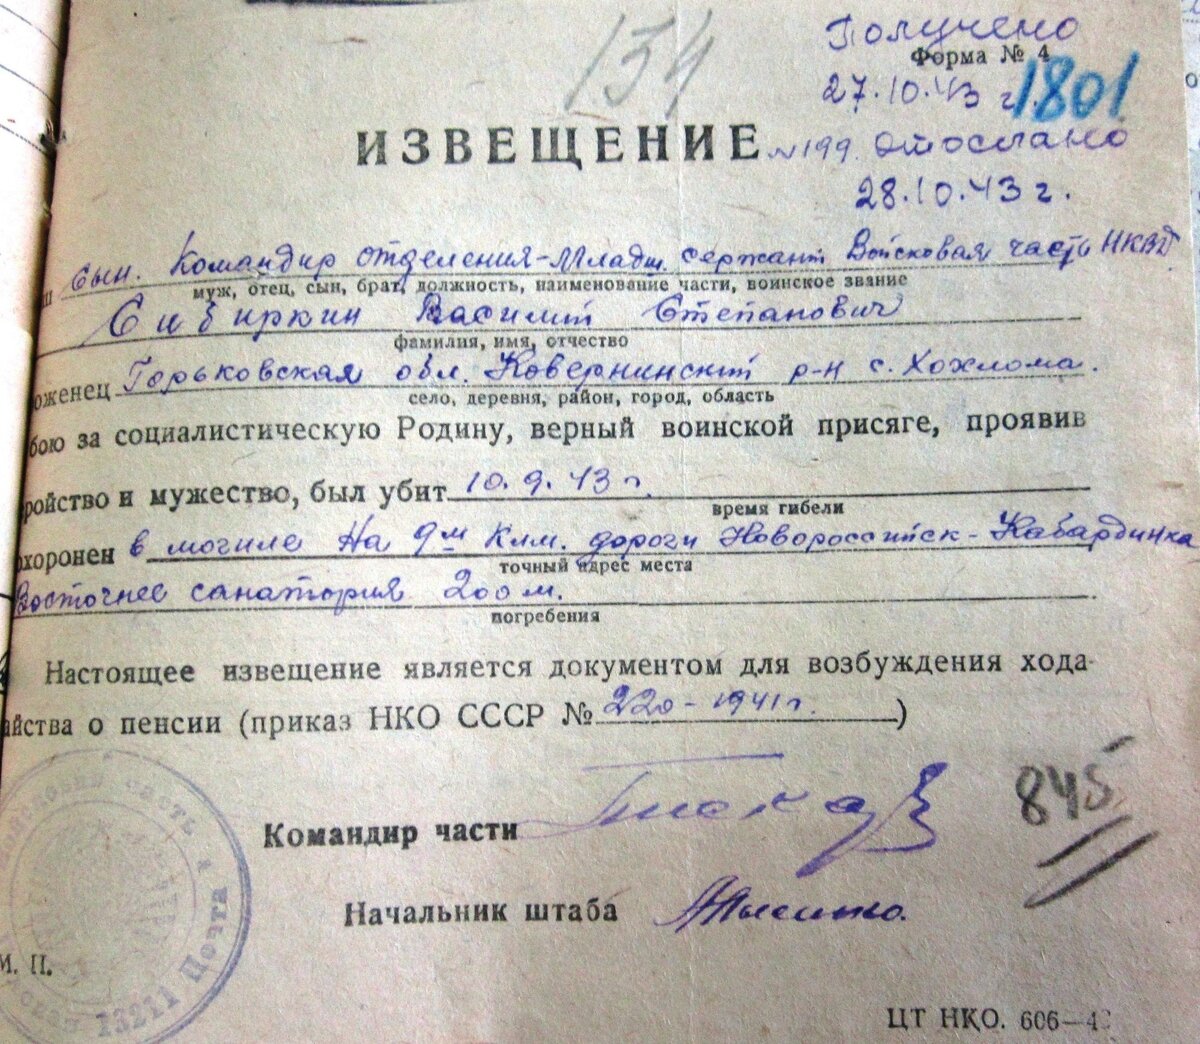 134
Получено
Форма № 4
27.10.43 г.
1801
ИЗВЕЩЕНИЕ №199. Отослано
28.10.43 г.
Сын. Командир отделения-Младш. сержант Войсковая часть НКВД
муж, отец, сын, брат, должность, наименование части, воинское звание
Сибиркин Василий Степанович
фамилия, имя, отчество
оженец Горьковская обл. Ковернинский р-н с. Хохлома.
село, деревня, район, город, область
бою за социалистическую Родину, верный воинской присяге, проявив
ройство и мужество, был убит 10.9.43 г.
время гибели
охоронен в могиле на 9м Клм. дороги Новороссийск-Кабардинка
точный адрес места
Восточнее санатория 200 м.
погребения
Настоящее извещение является документом для возбуждения хода-
айства о пенсии (приказ НКО СССР № 220-1941 г.)
Командир части
845
Начальник штаба
часть Почта 13211
М. П.
ЦТ НКО. 606—4